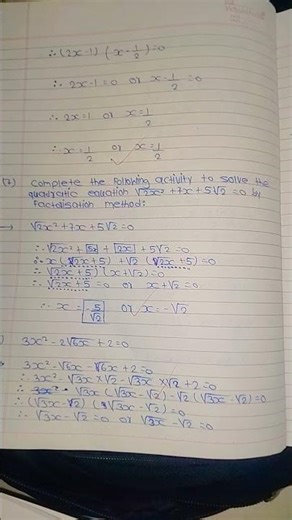 ∴ (2x-1) (x-1/2)=0
∴ 2x-1=0 or x-1/2=0
∴ 2x=1 or x=1/2
∴ x=1/2 or x=1/2
(7) Complete the following activity to solve the
quadratic equation √2x²+7x+5√2=0 by
Factorisation method:
→ √2x²+7x+5√2=0
∴ √2x²+5x+2x+5√2=0
∴ x(√2x+5)+√2(√2x+5)=0
∴ (√2x+5)(x+√2)=0
∴ √2x+5=0 or x+√2=0
∴ x=-5/√2 or x=-√2
) 3x²-2√6x+2=0
→ 3x²-√6x-√6x+2=0
∴ 3x²-√3x×√2-√3x×√2+2=0
∴ √3x(√3x-√2)-√2(√3x-√2)=0
∴ (√3x-√2)(√3x-√2)=0
∴ √3x-√2=0 or √3x-√2=0